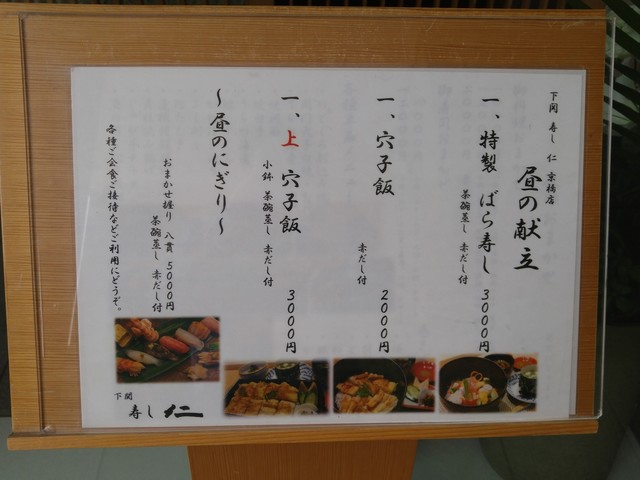 下関 寿し 仁 京橋店
昼の献立
一、特製 ばら寿し 3000円
茶碗蒸し 赤だし付
一、穴子飯 2000円
赤だし付
一、上 穴子飯 3000円
小鉢 茶碗蒸し 赤だし付
～昼のにぎり～
おまかせ握り 八貫 5000円
茶碗蒸し 赤だし付
各種ご会食ご接待などご利用にどうぞ。
下関
寿し 仁